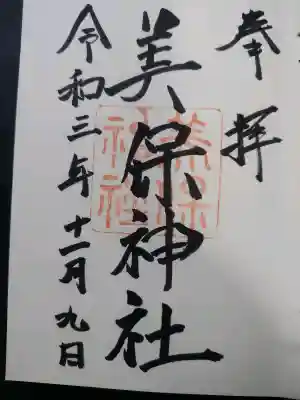 奉拝
美保神社
美保神社
令和三年十一月九日